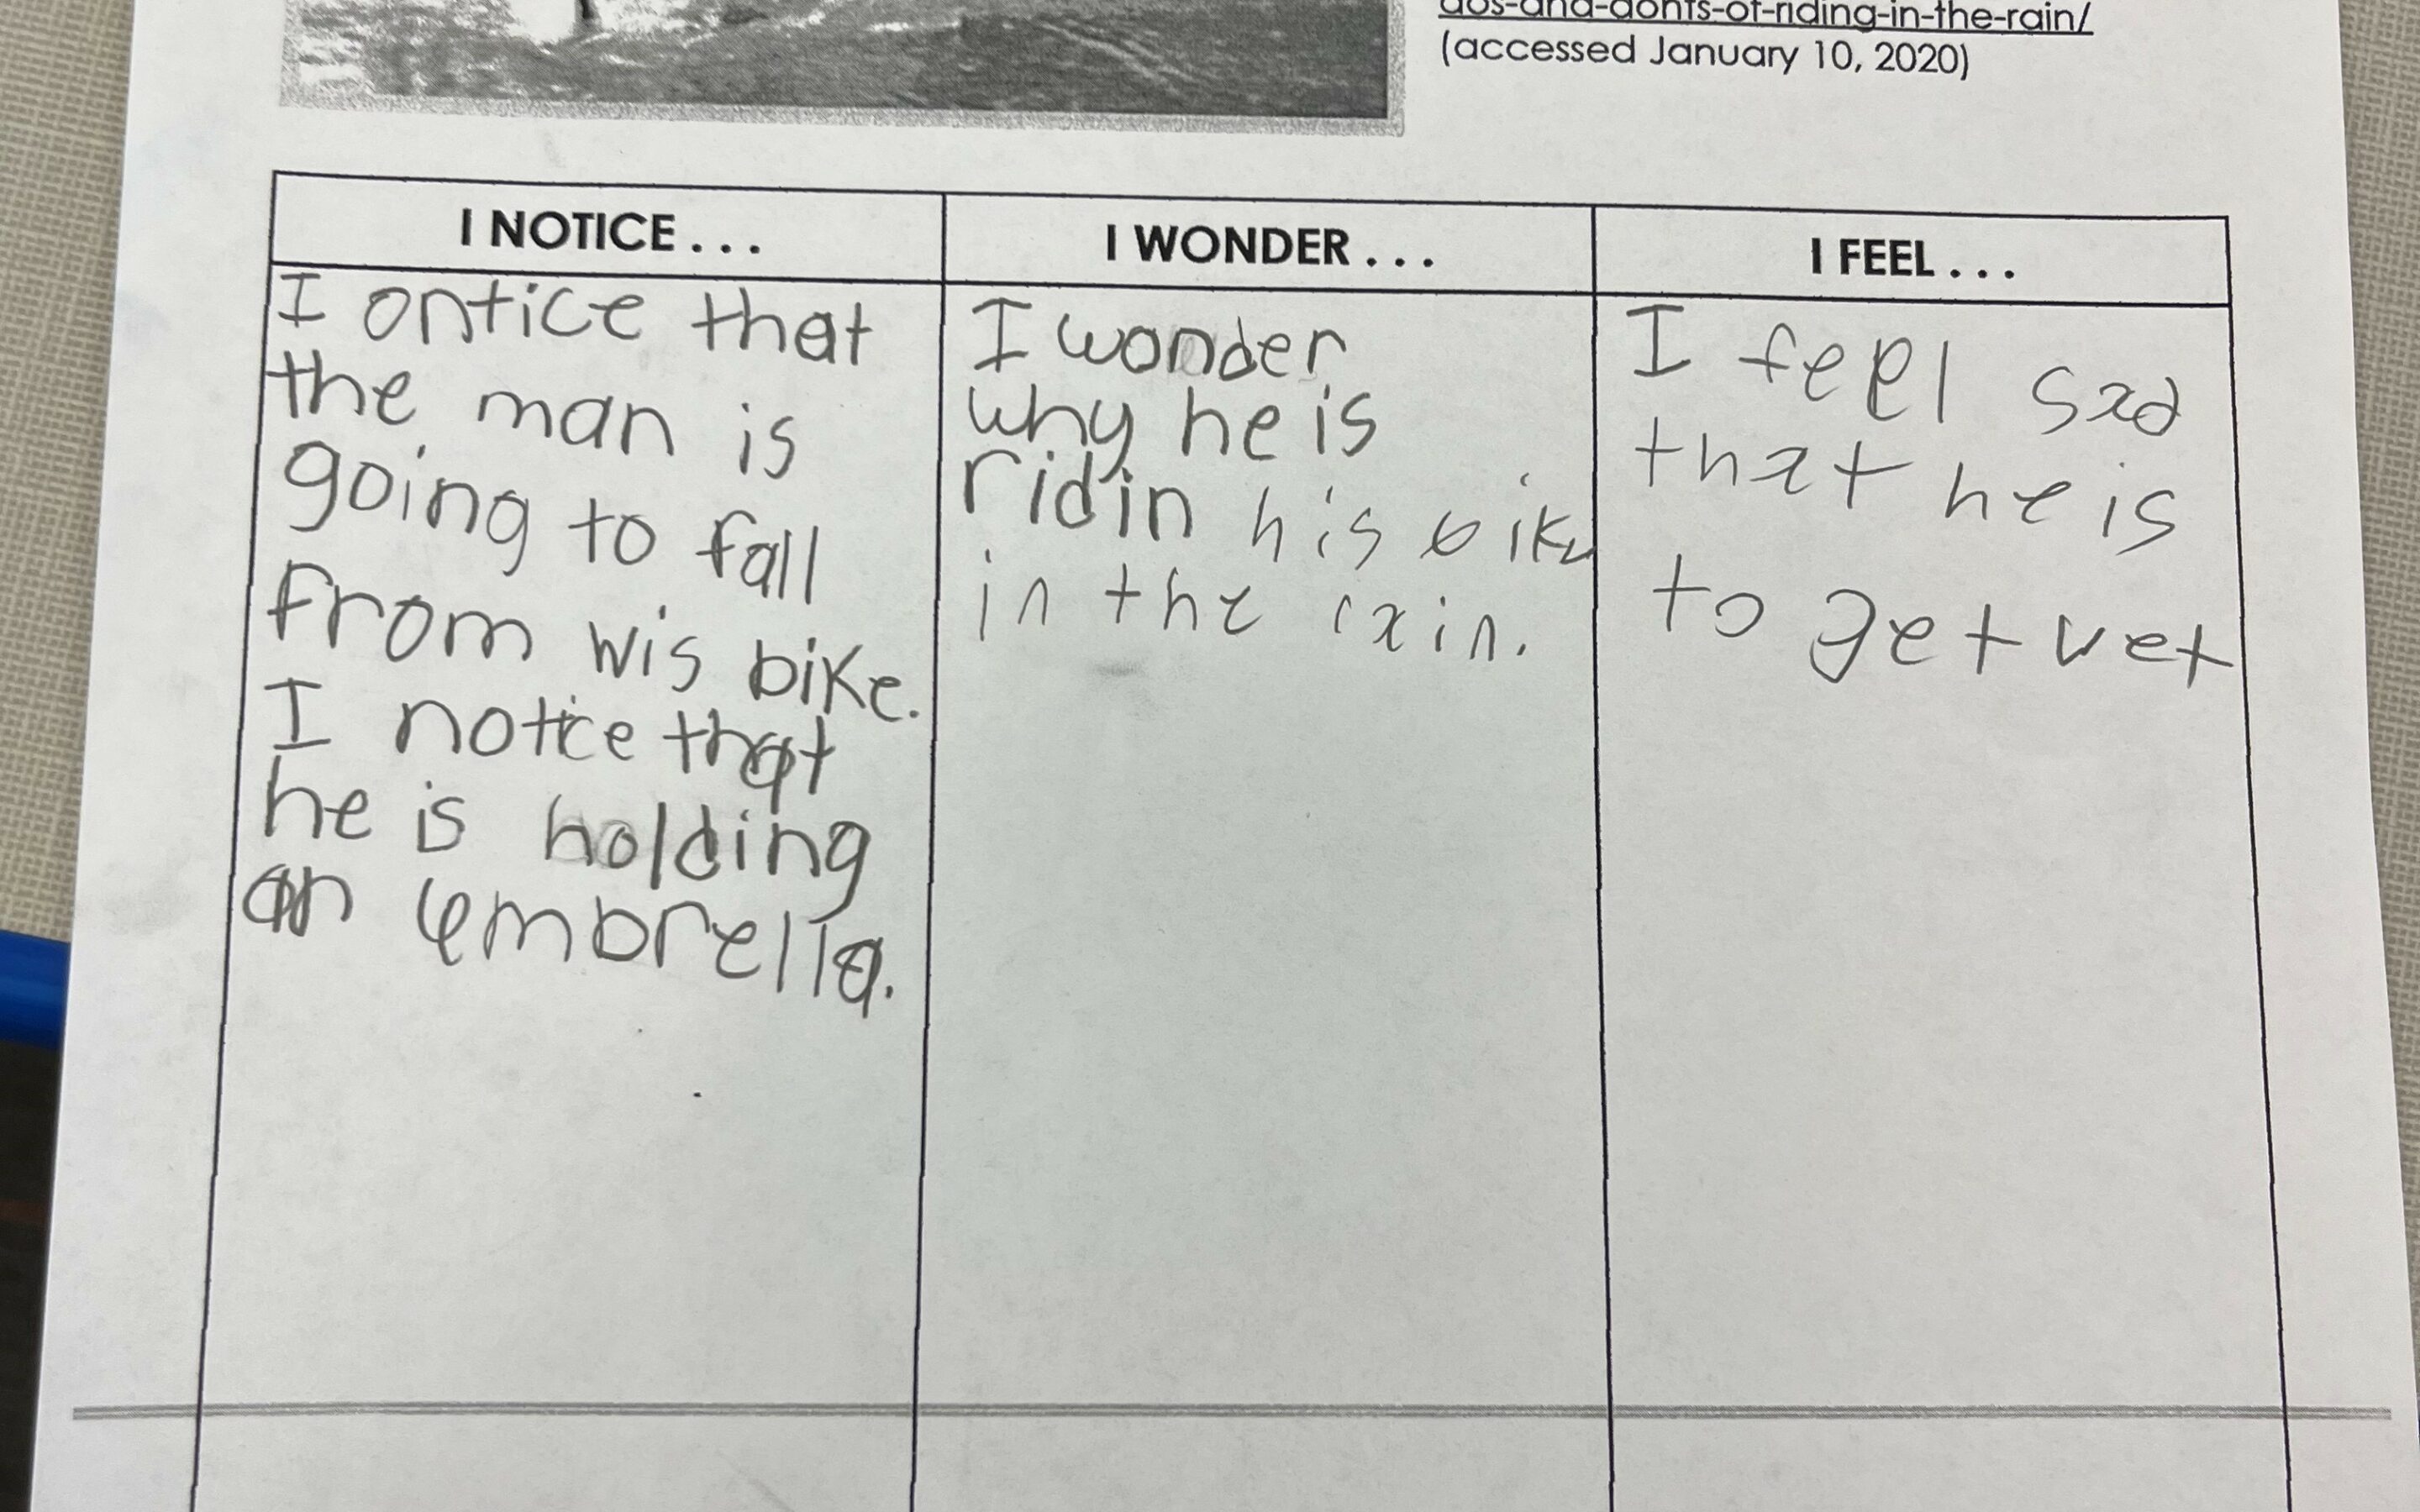 dos-and-donts-of-riding-in-the-rain/
(accessed January 10, 2020)
I NOTICE . . .
I ontice that
the man is
going to fall
from wis bike.
I notice that
he is holding
an umbrella.
I WONDER . . .
I wonder
why he is
ridin his bike
in the rain.
I FEEL . . .
I feel sad
that he is
to get wet